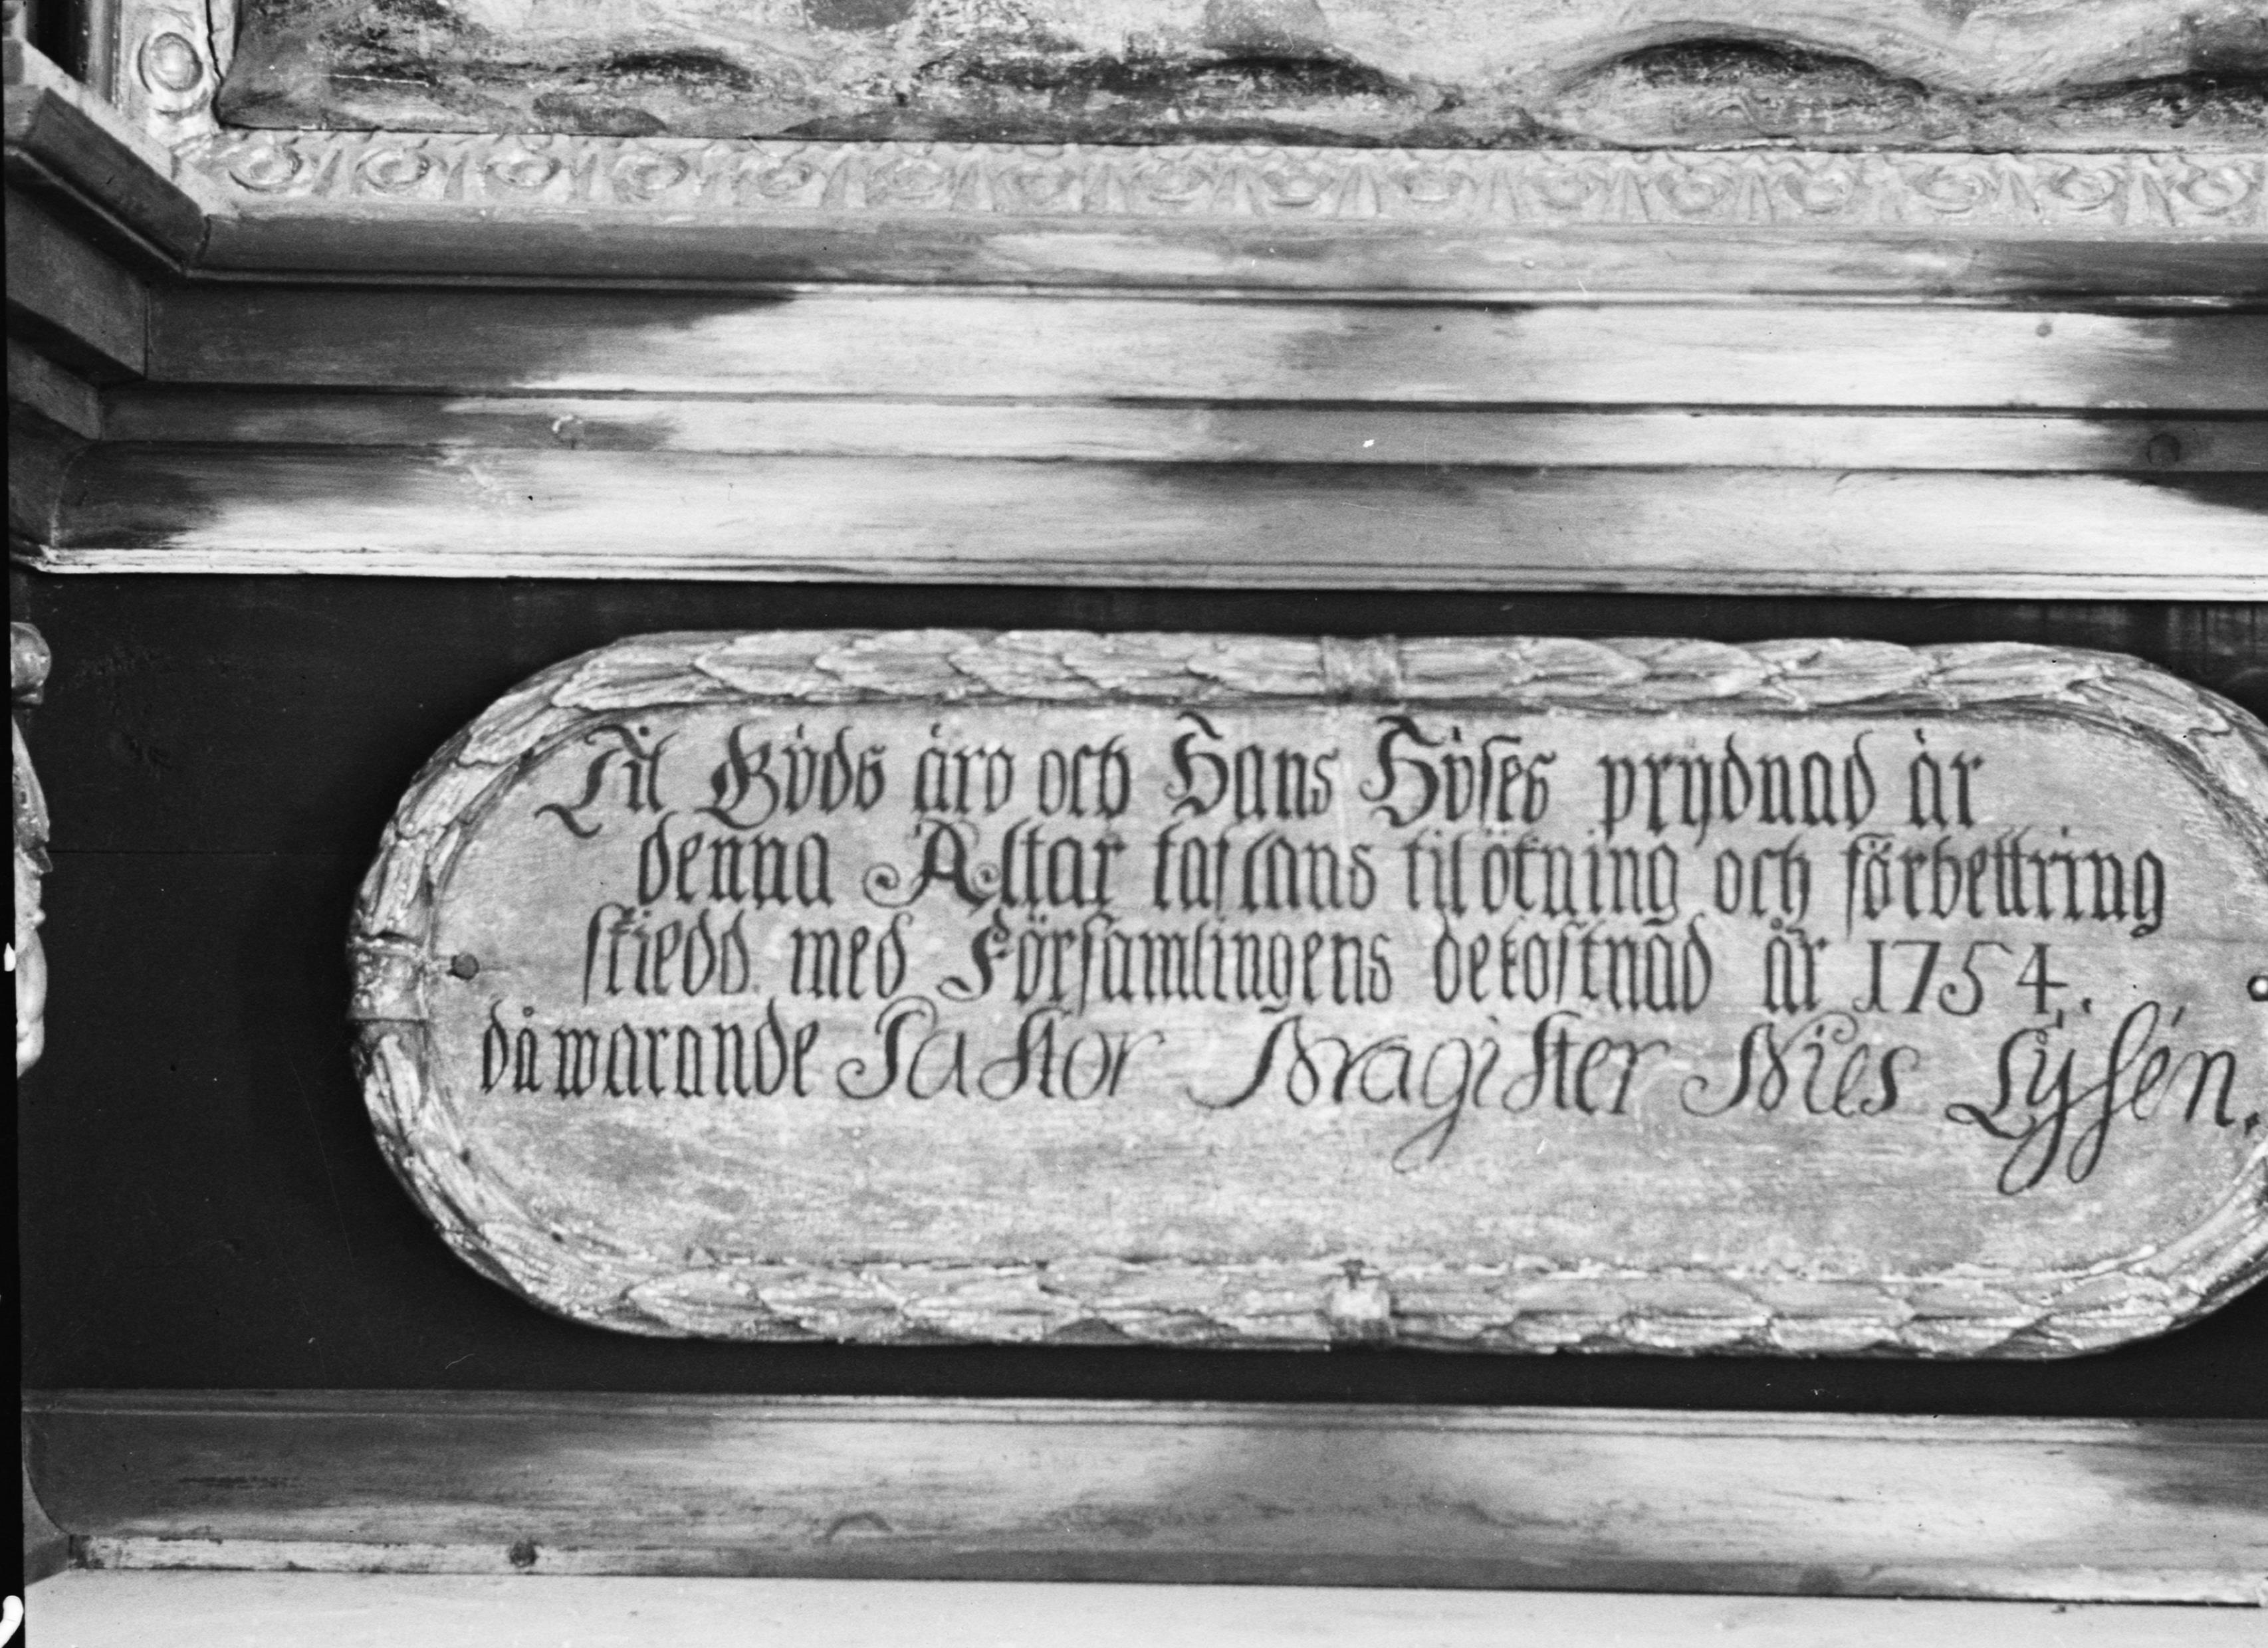 Til Guds äro och Hans Huses prydnad är
denna Altar taflans tilökning och förbettring
skiedd med Församlingens bekostnad år 1754.
då warande Pastor Magister Nies Lysén.